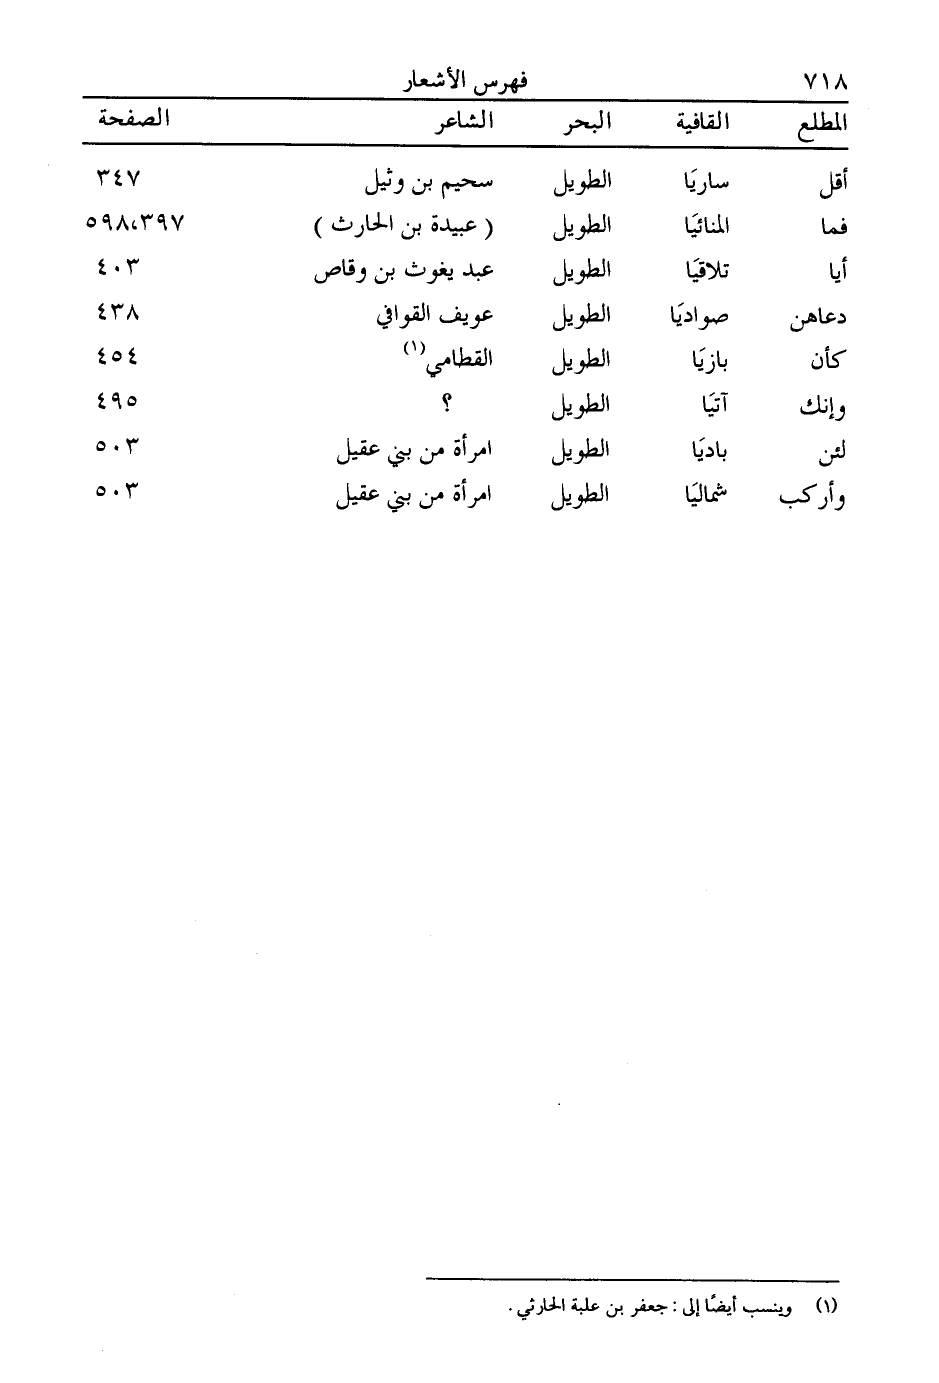 ٧١٨ فهرس الأشعار
المطلع القافية البحر الشاعر الصفحة
أقل ساريَا الطويل سحيم بن وثيل ٣٤٧
فما المنائيَا الطويل ( عبيدة بن الحارث ) ٥٩٨،٣٩٧
أيا تلاقيَا الطويل عبد يغوث بن وقاص ٤٠٣
دعاهن صواديَا الطويل عويف القوافي ٤٣٨
كأن بازيَا الطويل القطامي(١) ٤٥٤
وإنك آتيَا الطويل ؟ ٤٩٥
لئن باديَا الطويل امرأة من بني عقيل ٥٠٣
وأركب شماليَا الطويل امرأة من بني عقيل ٥٠٣
(١) وينسب أيضًا إلى : جعفر بن علبة الحارثي .